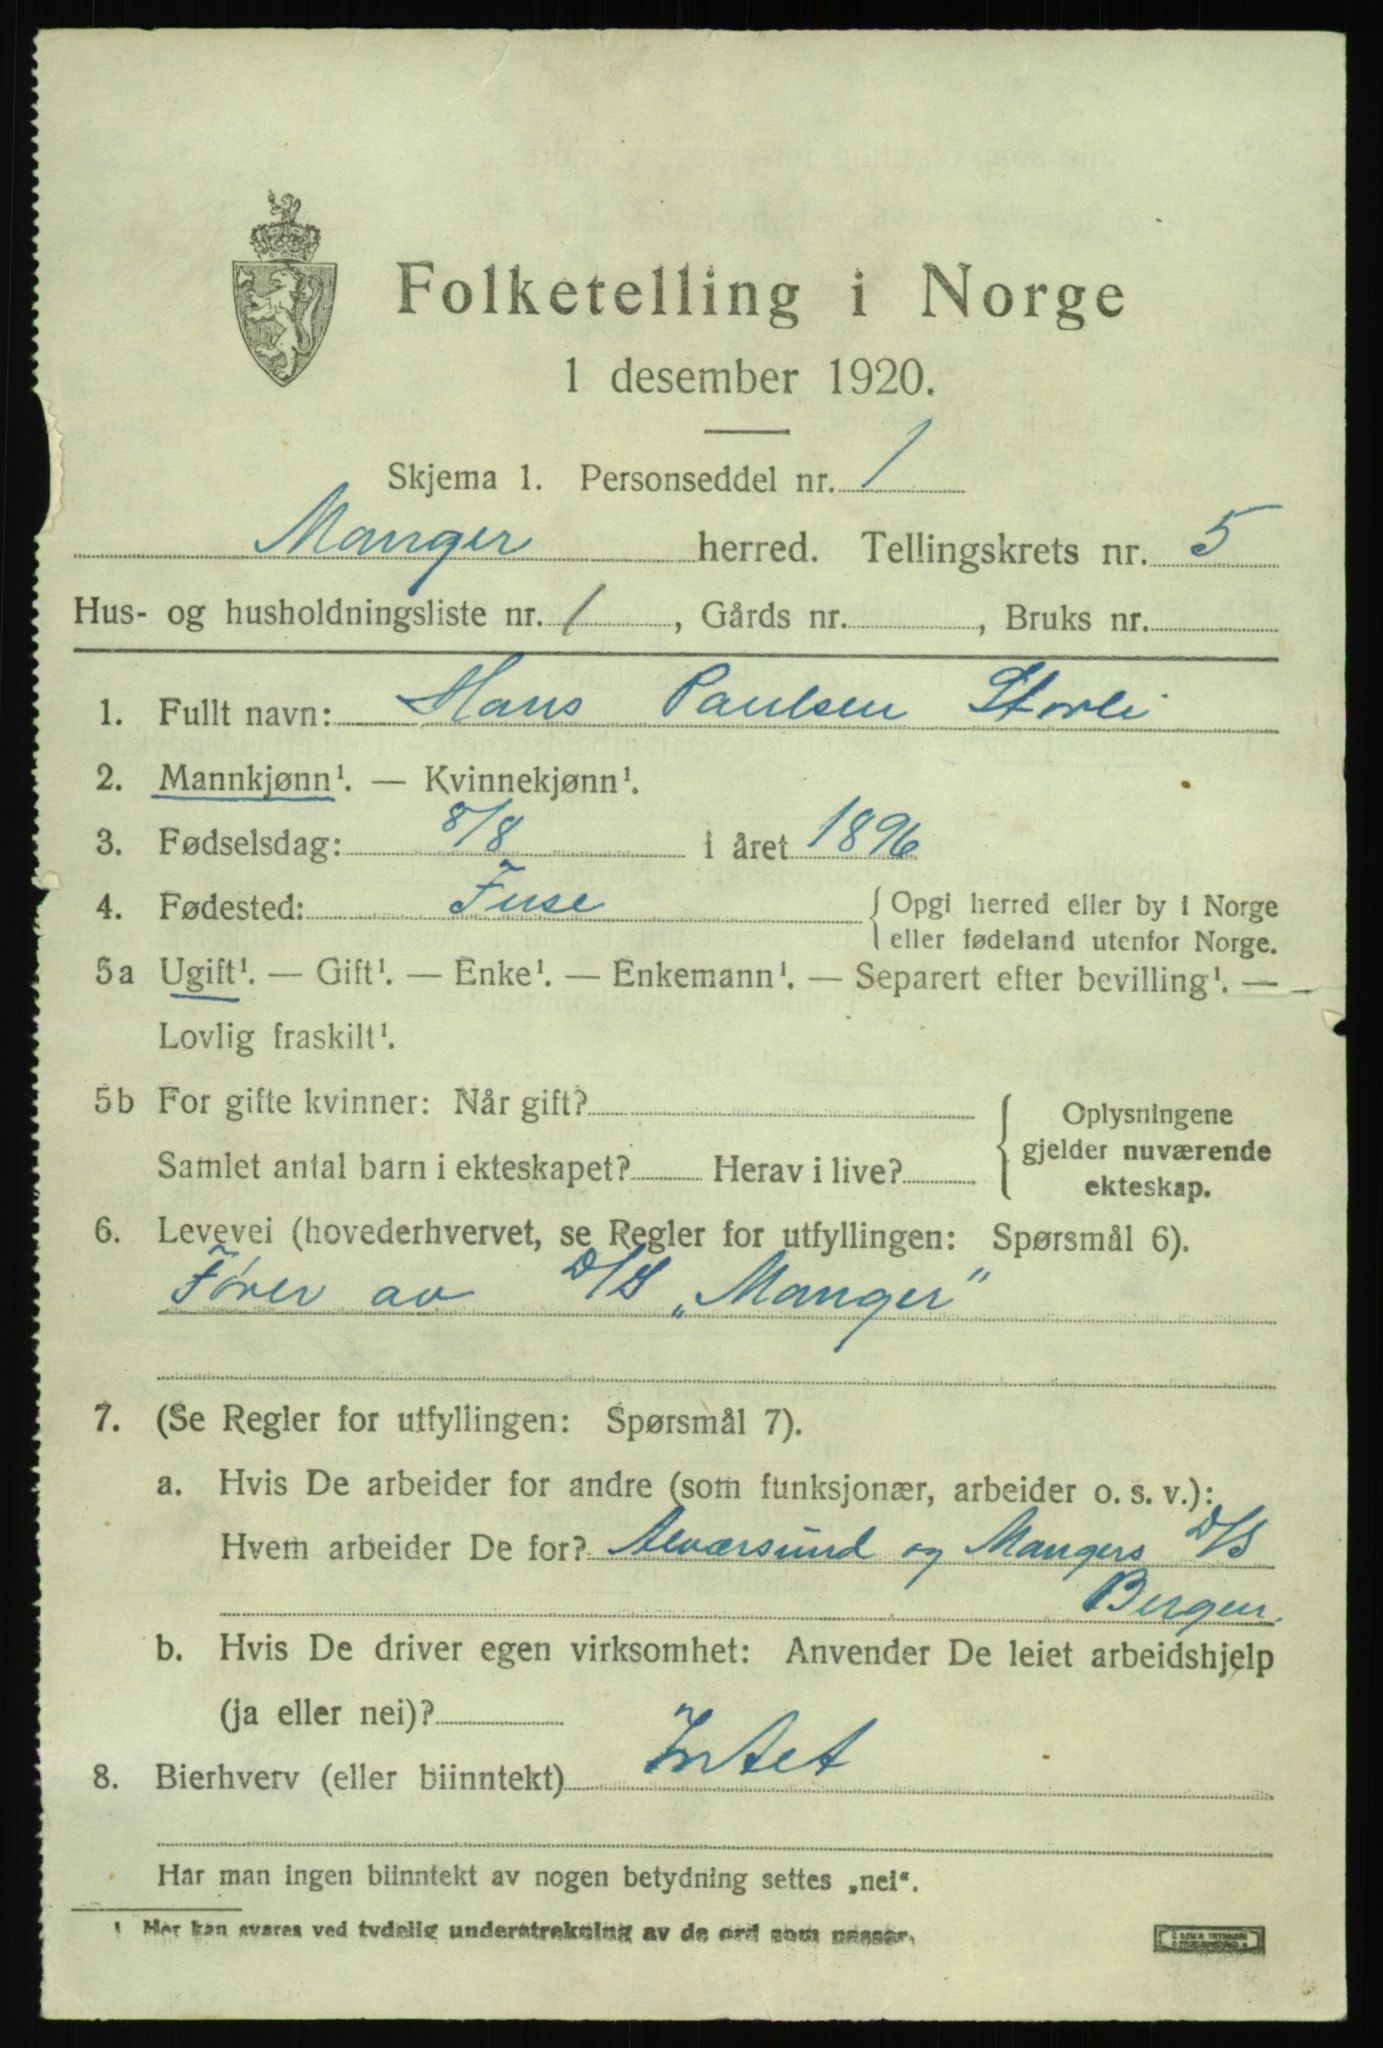 Folketelling i Norge
1 desember 1920.
Skjema 1. Personseddel nr. 1
Manger herred. Tellingskrets nr. 5
Hus- og husholdningsliste nr. 1, Gårds nr. , Bruks nr.
1. Fullt navn: Hans Paulsen Storli
2. Mannkjønn¹. — Kvinnekjønn¹.
3. Fødselsdag: 8/8 i året 1896
4. Fødested: Fuse { Opgi herred eller by i Norge
eller fødeland utenfor Norge.
5a Ugift¹. — Gift¹. — Enke¹. — Enkemann¹. — Separert efter bevilling¹. —
Lovlig fraskilt¹.
5b For gifte kvinner: Når gift? { Oplysningene
gjelder nuværende
Samlet antal barn i ekteskapet? Herav i live?
ekteskap.
6. Levevei (hovederhvervet, se Regler for utfyllingen: Spørsmål 6).
Fører av D/S „Manger"
7. (Se Regler for utfyllingen: Spørsmål 7).
a. Hvis De arbeider for andre (som funksjonær, arbeider o. s. v.):
Hvem arbeider De for? Alværsund og Mangers D/S
Bergen.
b. Hvis De driver egen virksomhet: Anvender De leiet arbeidshjelp
(ja eller nei)?
8. Bierhverv (eller biinntekt) Intet
Har man ingen biinntekt av nogen betydning settes „nei".
1 Her kan svares ved tydelig understrekning av de ord som passer.